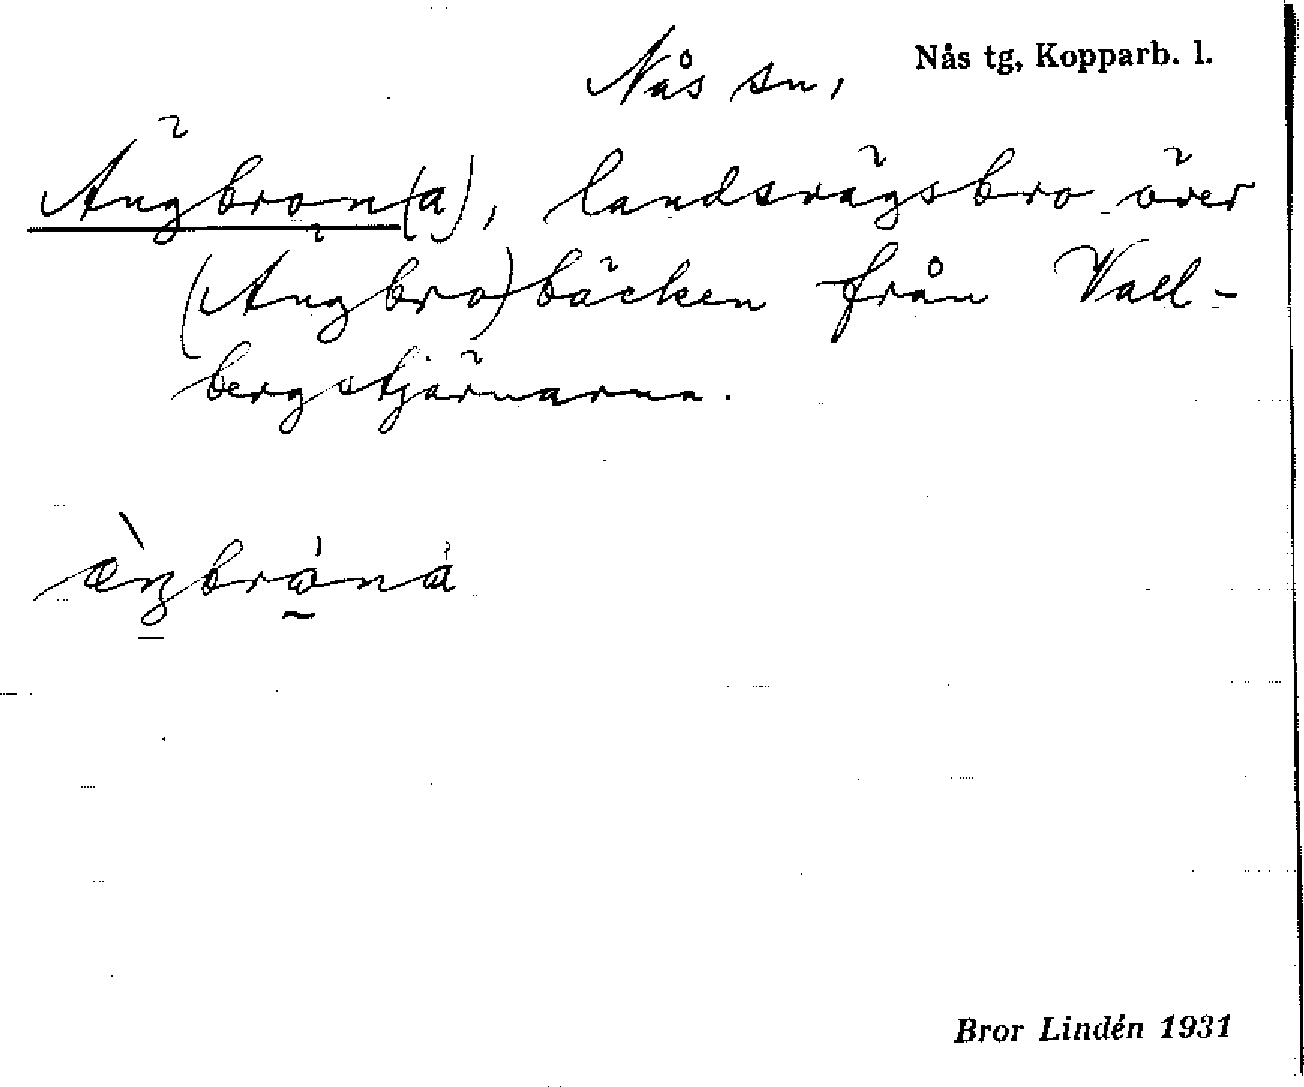 Nås sn, Nås tg, Kopparb. l.
Ängbron(a), landsvägsbro över
(Ängbro)bäcken från Vall-
bergstjärnarna.
Bror Lindén 1931